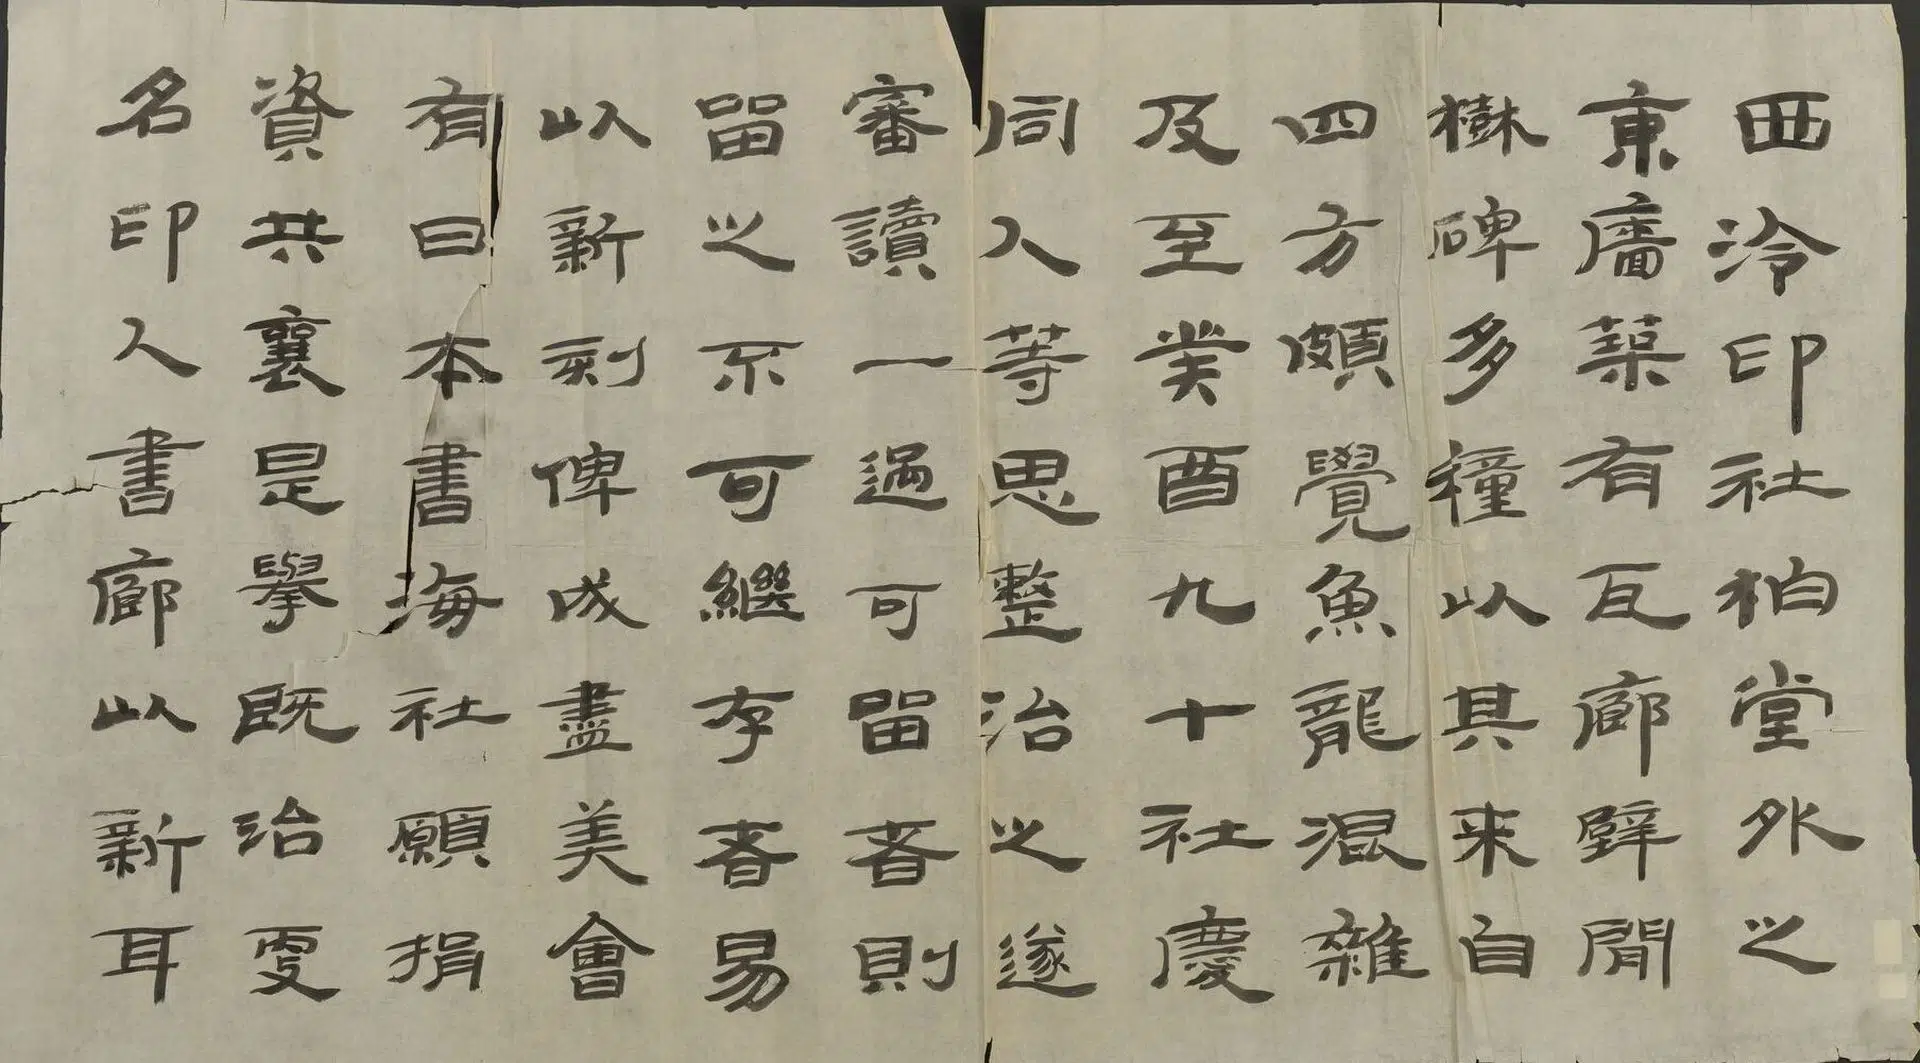 西泠印社柏堂外之
東廧築有瓦廊壁閒
樹碑多種以其来自
四方頗覺魚龍混雜
及至癸酉九十社慶
同人等思整治之遂
審讀一過可留者則
留之不可繼存者易
以新刻俾成盡美會
有日本書海社願捐
資共襄是舉既治更
名印人書廊以新耳